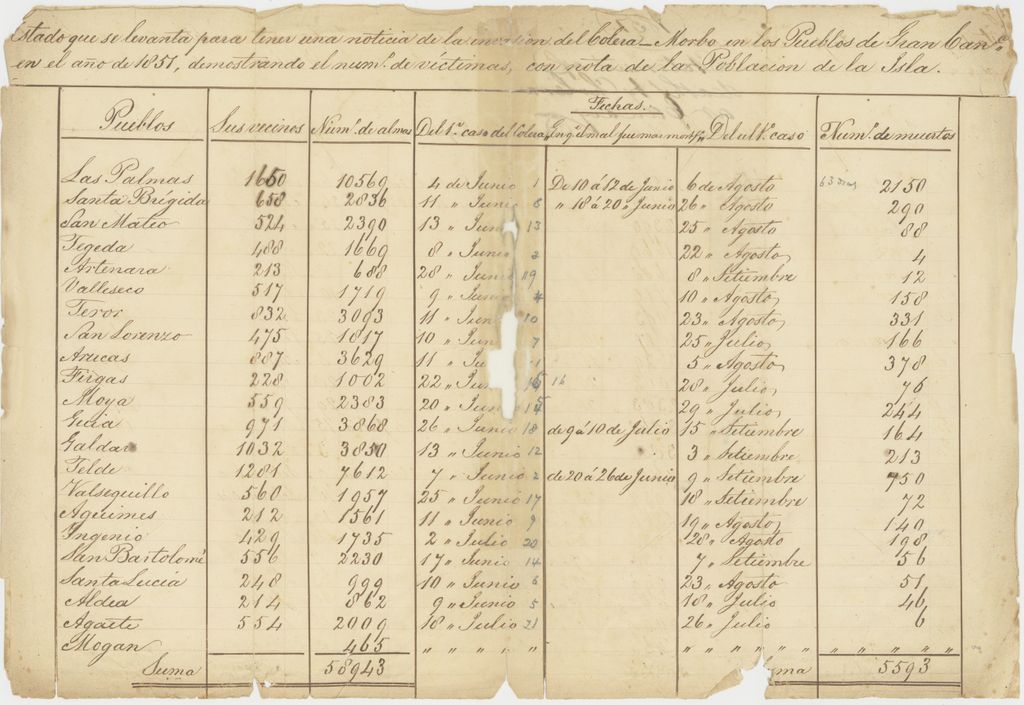 Estado que se levanta para tener una noticia de la invasion del Colera-Morbo en los Pueblos de Gran Can.ª
en el año de 1851, demostrando el num.º de victimas, con nota de la Poblacion de la Isla.
Fechas.
Pueblos Sus vecinos Num.º de almas Del 1.er caso del Colera En q.e el mal fue mas mortif.º Del ult.º caso Num.º de muertos
Las Palmas 1650 10569 4 de Junio 1 De 10 á 12 de Junio 6 de Agosto 63 dias 2150
Santa Brígida 658 2836 11 " Junio 8 " 18 á 20 " Junio 26 " Agosto 290
San Mateo 524 2390 13 " Jun 13 25 " Agosto 88
Tegeda 488 1669 8 " Junio 3 22 " Agosto 4
Artenara 213 688 28 " Junio 19 8 " Setiembre 12
Valleseco 517 1719 9 " Junio 4 10 " Agosto 158
Teror 832 3093 11 " Jun 10 23 " Agosto 331
San Lorenzo 475 1817 10 " Jun 7 25 " Julio 166
Arucas 887 3629 11 " Ju 11 5 " Agosto 378
Firgas 228 1002 22 " Jun 16 16 28 " Julio 76
Moya 559 2383 20 " Jun 15 29 " Julio 244
Guia 971 3868 26 " Junio 18 de 9 á 10 de Julio 15 " Setiembre 164
Galdar 1032 3850 13 " Junio 12 3 " Setiembre 213
Telde 1281 7612 7 " Junio 2 de 20 á 26 de Junio 9 " Setiembre 750
Valsequillo 560 1957 25 " Junio 17 18 " Setiembre 72
Aguimes 212 1561 11 " Junio 9 19 " Agosto 140
Ingenio 429 1735 2 " Julio 20 28 " Agosto 198
San Bartolomé 556 2230 17 " Junio 14 7 " Setiembre 56
Santa Lucia 248 999 10 " Junio 6 23 " Agosto 51
Aldea 214 862 9 " Junio 5 18 " Julio 46
Agaete 554 2009 18 " Julio 21 26 " Julio 6
Mogan 465 " " " " " " " " " " " " " " "
Suma 58943 ma 5593